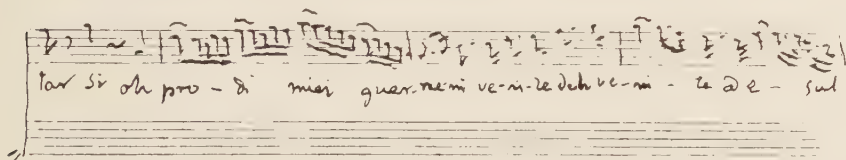 tar si oh pro - di miei guer-rieri ve-ni-te deh ve-ni - te a de - sul